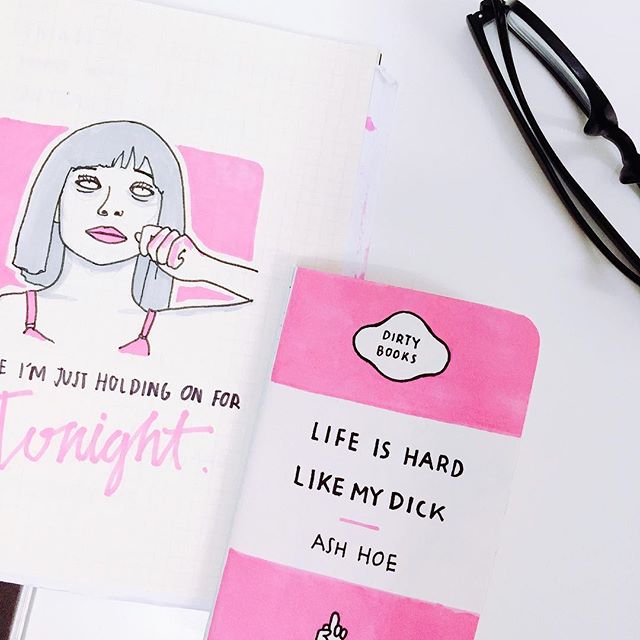 E I'M JUST HOLDING ON FOR
tonight.
DIRTY
BOOKS
LIFE IS HARD
LIKE MY DICK
ASH HOE